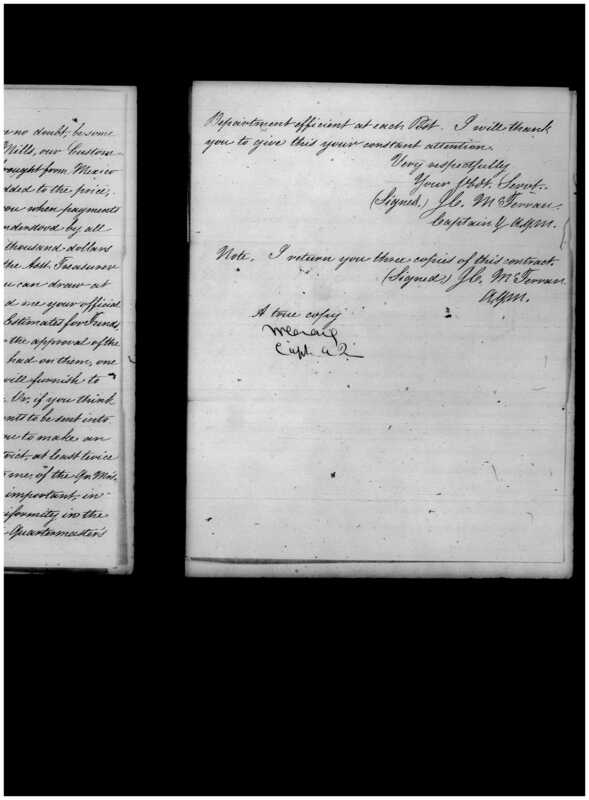 no doubt, be some
Mills, our Custom-
brought from Mexico
added to the price,
you when payments
understood by all
thousand dollars
the Asst. Treasurer
you can draw at
me your official
Estimates for Funds
the approval of the
had on them, one
will furnish to
Or, if you think
to be sent into
you to make an
at least twice
me, of the Qr. Mrs.
important, in
uniformity in the
Quartermaster's
Department efficient at each Post. I will thank
you to give this your constant attention.
Very respectfully
Your Obdt. Servt.
(Signed.) J.C. McFerran.
Captain & A.Q.M.
Note. I return you three copies of this contract.
(Signed) J.C. McFerran
A.Q.M.
A true copy
Wm Craig
Capt. a Q